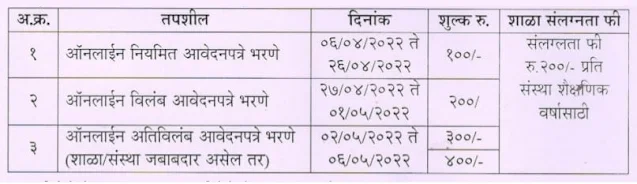 अ.क्र. तपशील दिनांक शुल्क रु. शाळा संलग्नता फी
१ ऑनलाईन नियमित आवेदनपत्रे भरणे ०६/०४/२०२२ ते २६/०४/२०२२ १००/- संलग्लता फी रु.२००/- प्रति संस्था शैक्षणिक वर्षासाठी
२ ऑनलाईन विलंब आवेदनपत्रे भरणे २७/०४/२०२२ ते ०१/०५/२०२२ २००/
३ ऑनलाईन अतिविलंब आवेदनपत्रे भरणे ०२/०५/२०२२ ते ३००/-
(शाळा/संस्था जबाबदार असेल तर) ०६/०५/२०२२ ४००/-